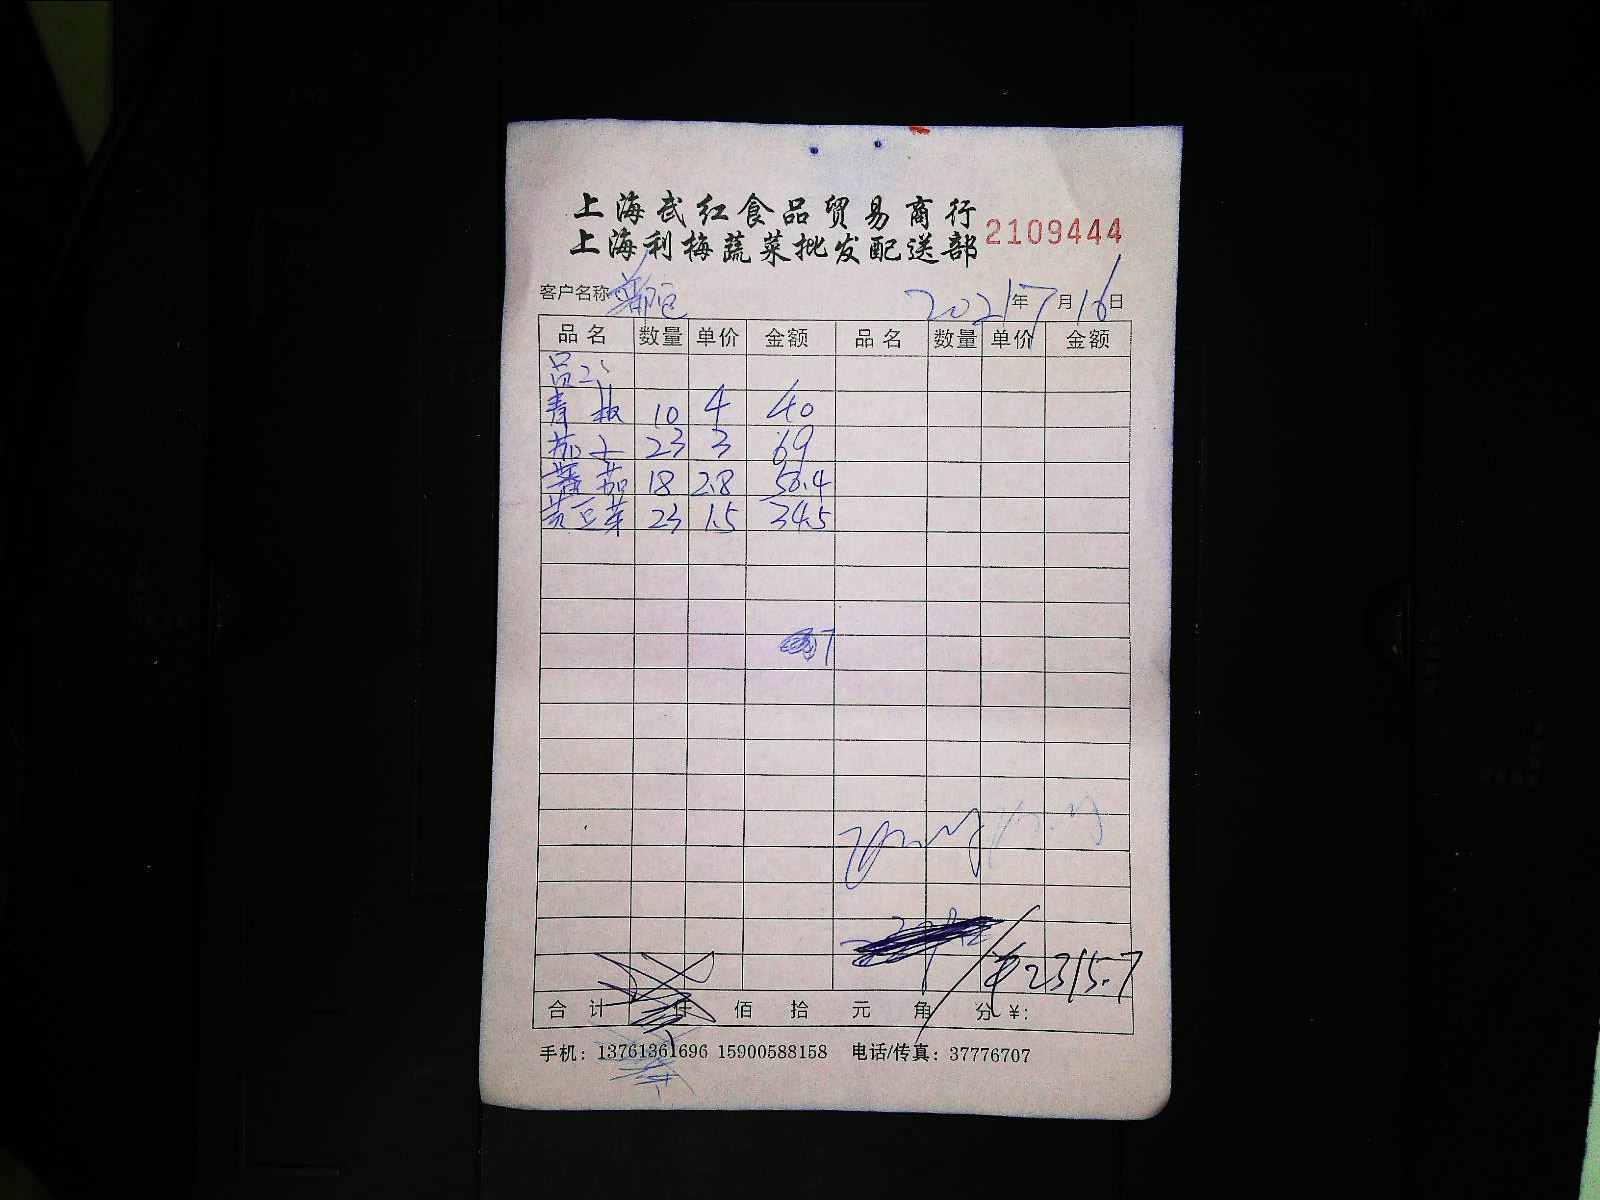 上海武红食品贸易商行
上海利梅蔬菜批发配送部 2109444
客户名称 2021年7月16日
品名 数量 单价 金额 品名 数量 单价 金额
员工
青椒 10 4 40
茄子 23 3 69
蕃茄 18 2.8 50.4
黄豆芽 23 1.5 34.5
¥2315.7
合计 仟 佰 拾 元 角 分 ¥:
手机：13761361696 15900588158 电话/传真：37776707